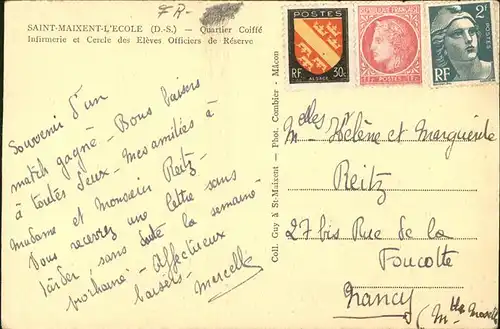 FR-
SAINT-MAIXENT-L'ECOLE (D.-S.) — Quartier Coiffé
Infirmerie et Cercle des Elèves Officiers de Réserve
Souvenir d'un
match gagné - Bons baisers
à toutes deux - Mes amitiés à
Madame et Monsieur Reitz -
Vous recevrez une lettre sans
tarder, sans doute la semaine
prochaine - Affectueux
baisers - Marcelle
Coll. Guy à St-Maixent - Phot. Combier - Mâcon
POSTES
RF
ALSACE
30c
POSTES
2F
RF
Mlles Hélène et Marguerite
Reitz
27 bis Rue de la
Foucotte
Nancy (Mthe Moselle